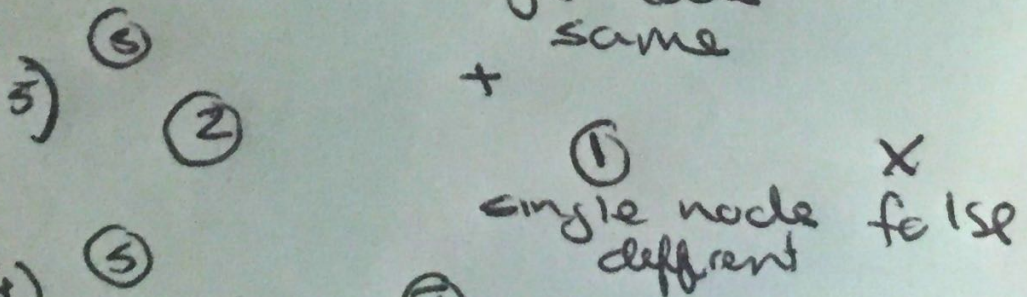 same
5) 5
2
+
1 X
single node false
deffrent
5